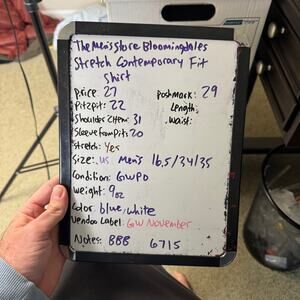 The Men's Store Bloomingdales
Stretch Contemporary Fit
Shirt
Price: 27 Poshmark: 29
Pit2pit: 22 Length:
Shoulder2Hem: 31 Waist:
Sleeve from Pit: 20
Stretch: Yes
Size: US Men's 16.5/34/35
Condition: GWPO
Weight: 9oz
Color blue, white
Vendoo Label: GW November
Notes: BBB 6715